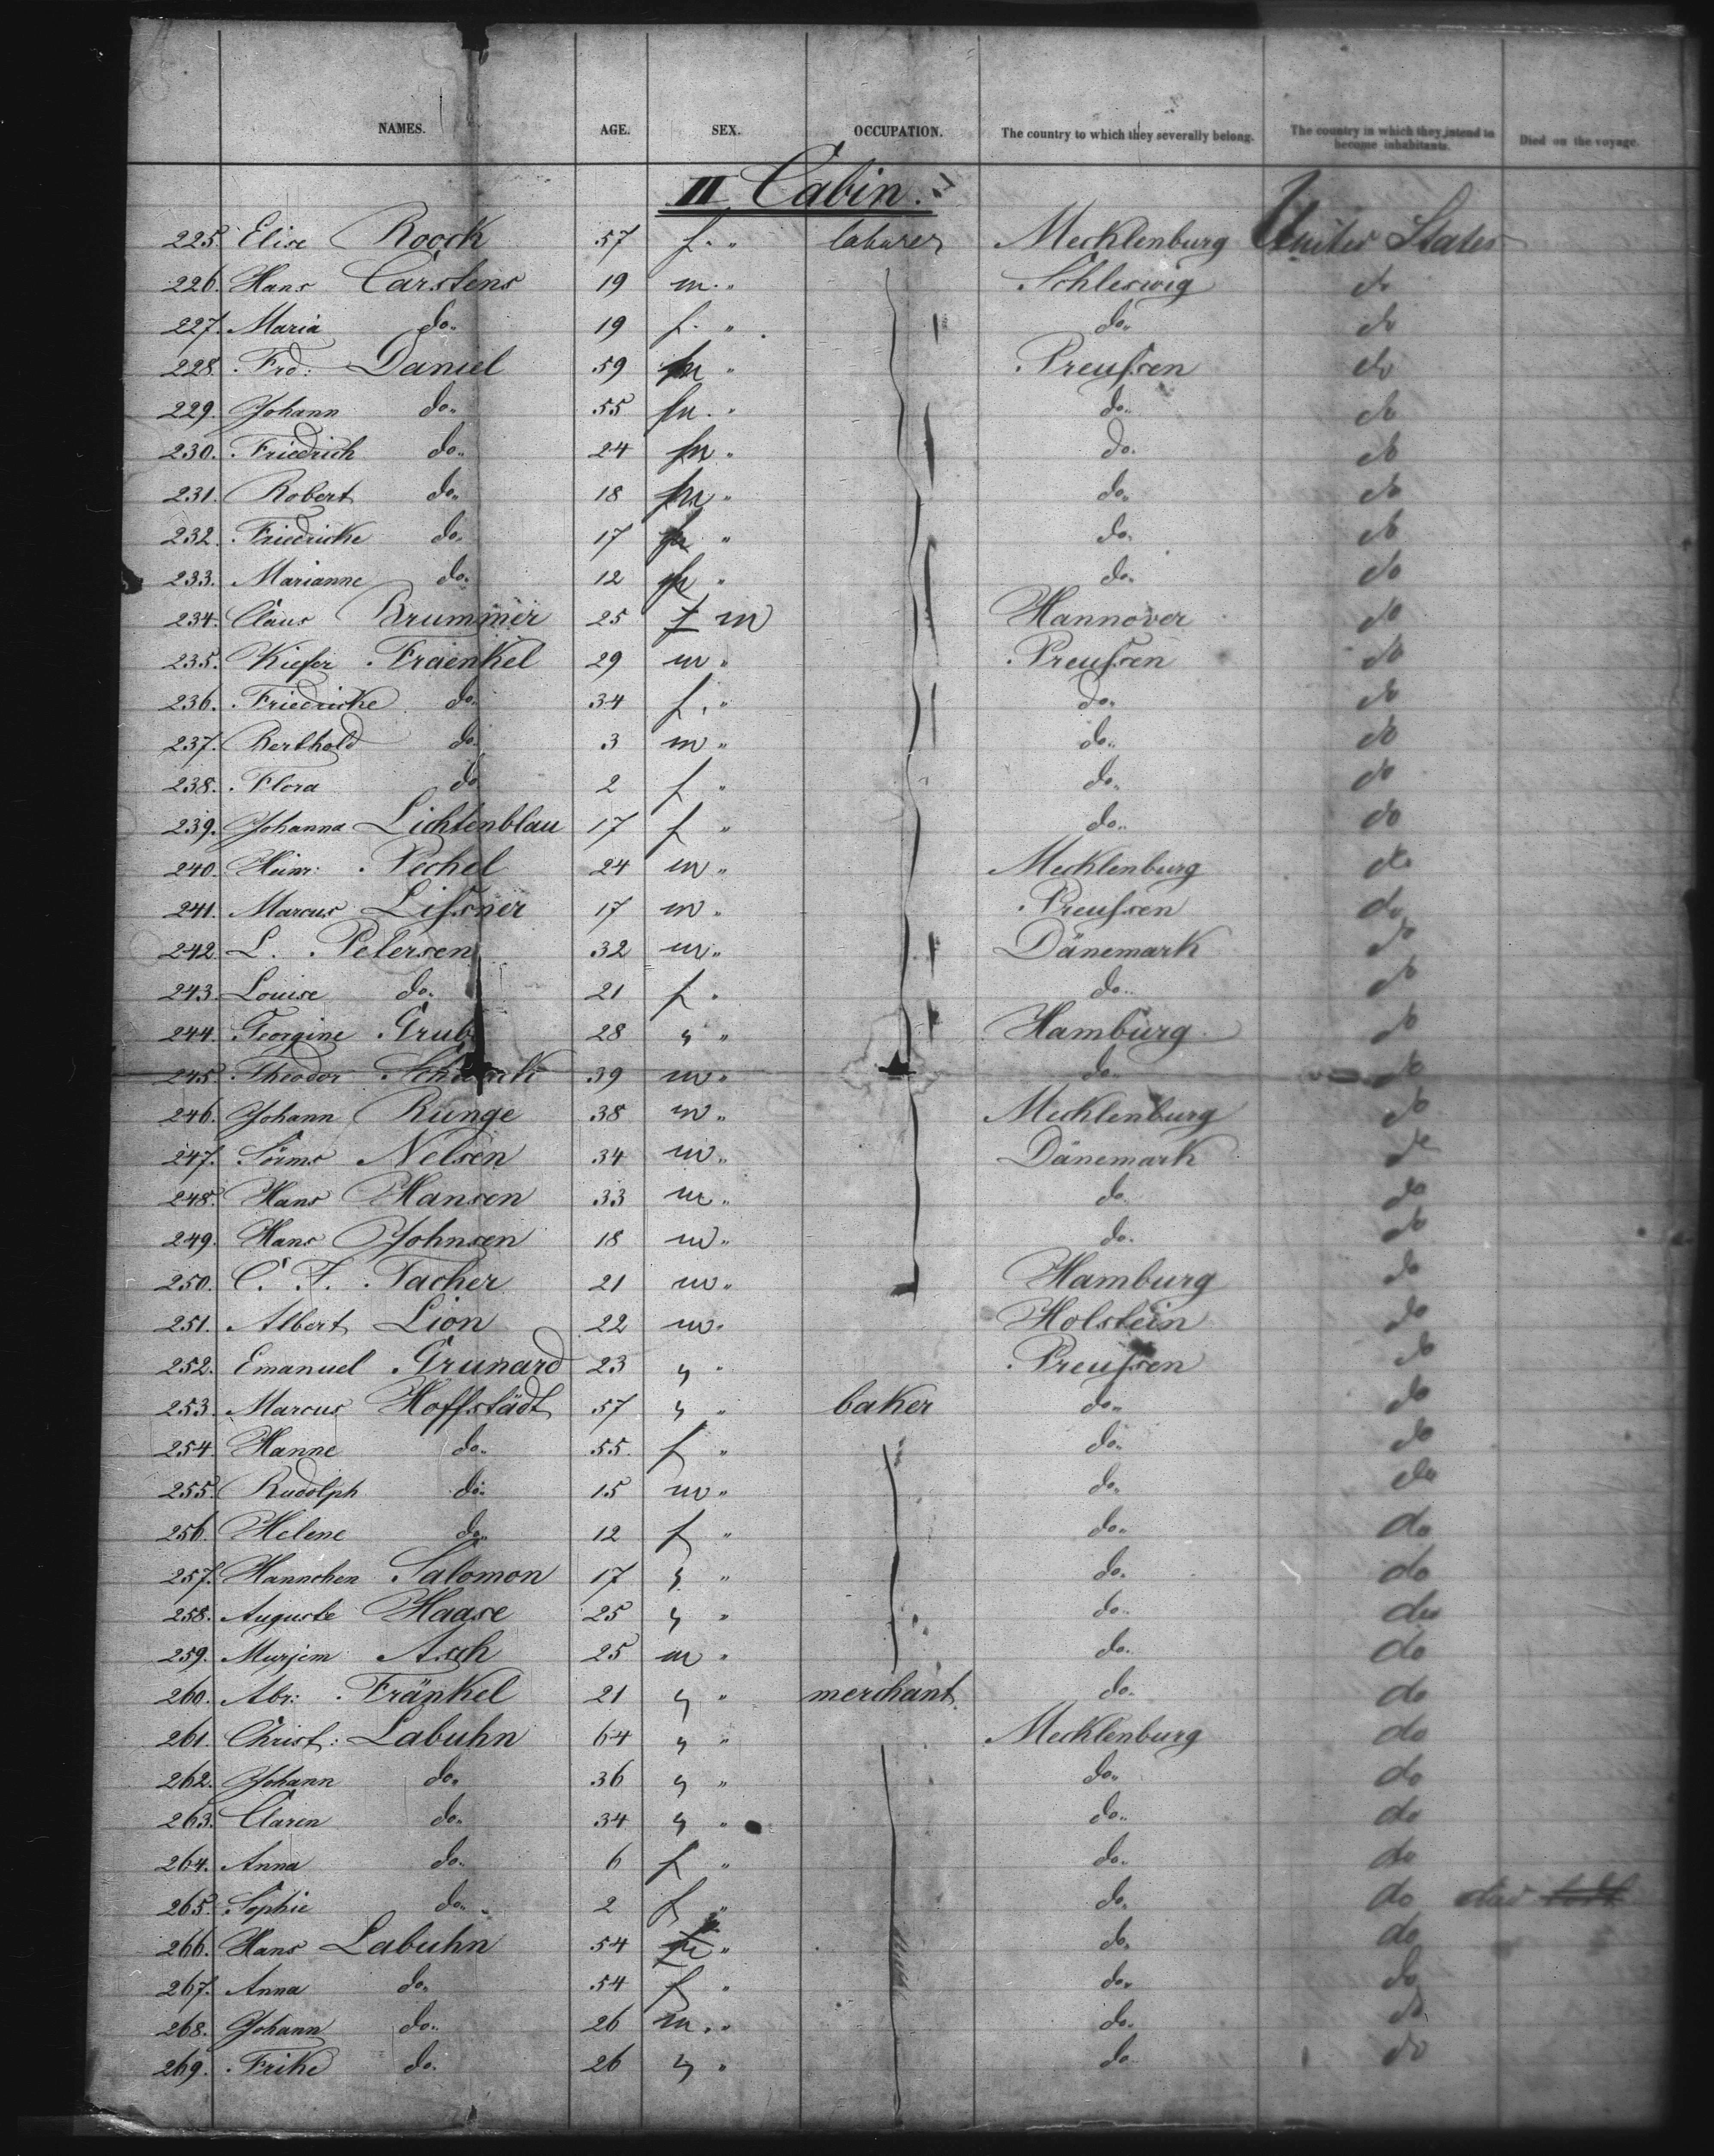 NAMES. AGE. SEX. OCCUPATION. The country to which they severally belong. The country in which they intend to become inhabitants. Died on the voyage.
II Cabin.
225. Elise Roock 57 f. " labarer Mecklenburg United States
226. Hans Carstens 19 m. " Schleswig do
227. Maria do. 19 f. " do. do
228. Frd: Daniel 59 m " Preussen do
229. Johann do. 55 m. " do. do
230. Friedrich do. 24 m " do. do
231. Robert do. 18 m " do. do
232. Friedricke do. 17 " do. do
233. Marianne do. 12 " do. do
234. Claus Brummer 25 f m Hannover do
235. Kiefer Fraenkel 29 m " Preussen do
236. Friedricke do. 34 f. " do. do
237. Berthold do. 3 m " do. do
238. Flora do 2 f " do. do
239. Johanna Lichtenblau 17 f " do. do
240. Heinr: Pechel 24 m " Mecklenburg do
241. Marcus Lissner 17 m " Preussen do
242. L. Petersen 32 m " Dänemark do
243. Louise do. 21 f " do. do
244. Georgine Grub 28 " " Hamburg do
245. Theodor 39 m " do. do
246. Johann Runge 38 m " Mecklenburg do
247. Nelsen 34 m " Dänemark do
248. Hans Hansen 33 m " do. do
249. Hans Johnsen 18 m " do. do
250. C. F. Tacher 21 m " Hamburg do
251. Albert Lion 22 m " Holstein do
252. Emanuel Grunard 23 " " Preussen do
253. Marcus Hoffstädt 57 " " baker do. do
254. Hanne do. 55. f " do. do
255. Rudolph do. 15 m " do. do
256. Helene do. 12 f " do. do
257. Hannchen Salomon 17 " " do. do
258. Auguste Haase 25 " " do. do
259. Murjem Asch 25 m " do. do
260. Abr: Fränkel 21 " " merchant do. do
261. Christ: Labuhn 64 " " Mecklenburg do
262. Johann do. 36 " " do. do
263. Claren do. 34 " " do. do
264. Anna do. 6 f " do. do
265. Sophie do. 2 f " do. do
266. Hans Labuhn 54 " do. do
267. Anna do. 54 f " do. do
268. Johann do. 26 m. " do. do
269. Frike do. 26 " " do. do